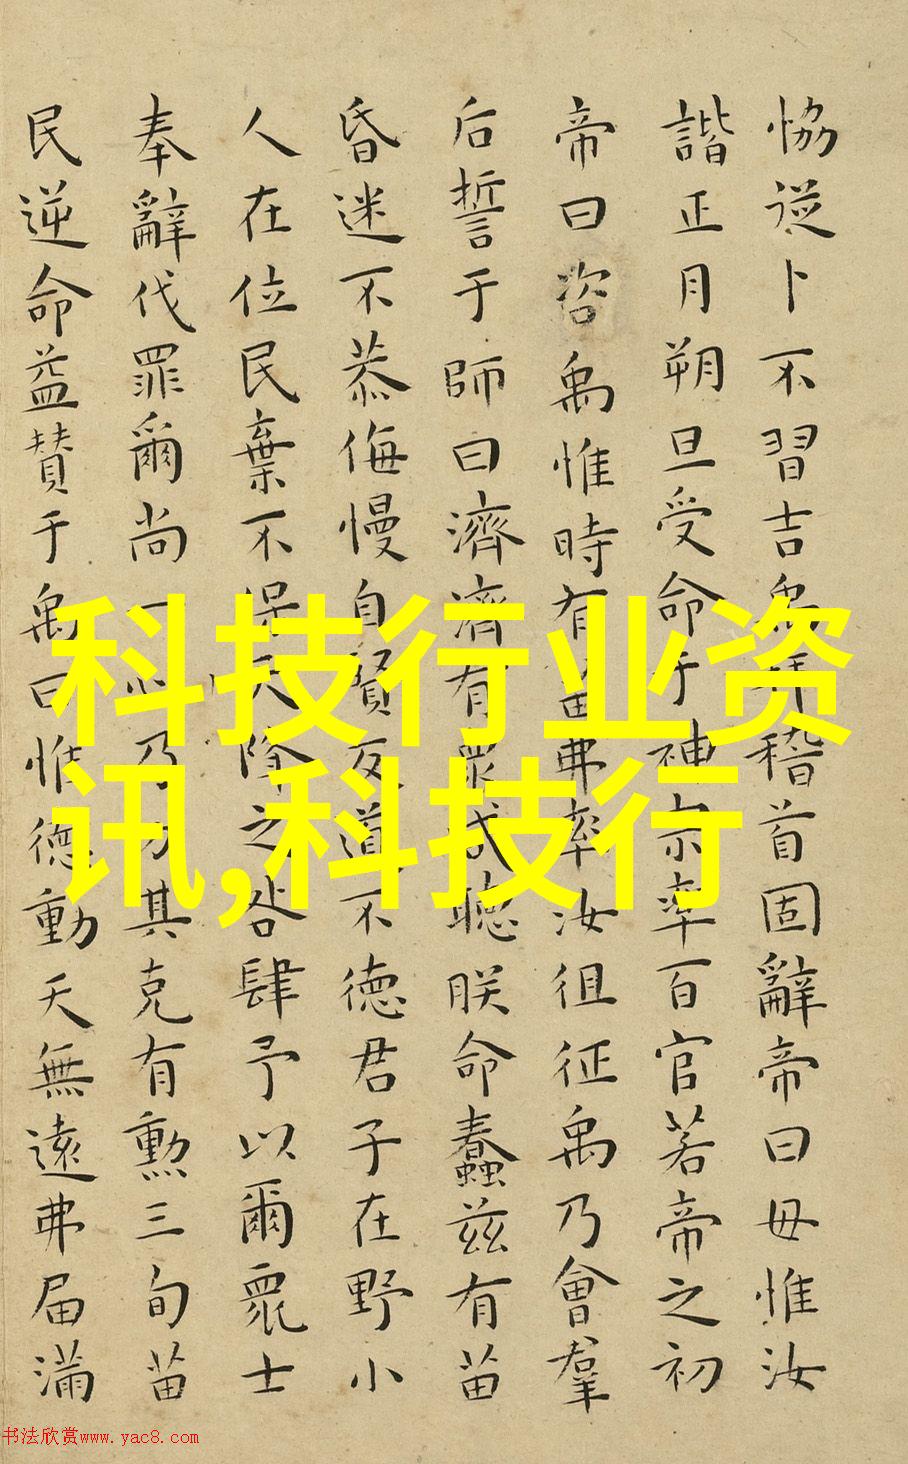 恊從卜不習吉禹拜稽首固辭帝曰毋惟汝
諧正月朔旦受命于神宗率百官若帝之初
帝曰咨禹惟時有苗弗率汝徂征禹乃會羣
后誓于師曰濟濟有眾咸聽朕命蠢茲有苗
昏迷不恭侮慢自賢反道不徳君子在野小
人在位民棄不保天降之咎肆予以爾眾士
奉辭伐罪爾尚一心乃力其克有勲三旬苗
民逆命益賛于禹曰惟徳動天無遠弗届滿
科技行业资
讯,科技行
书法欣赏www.yac8.com